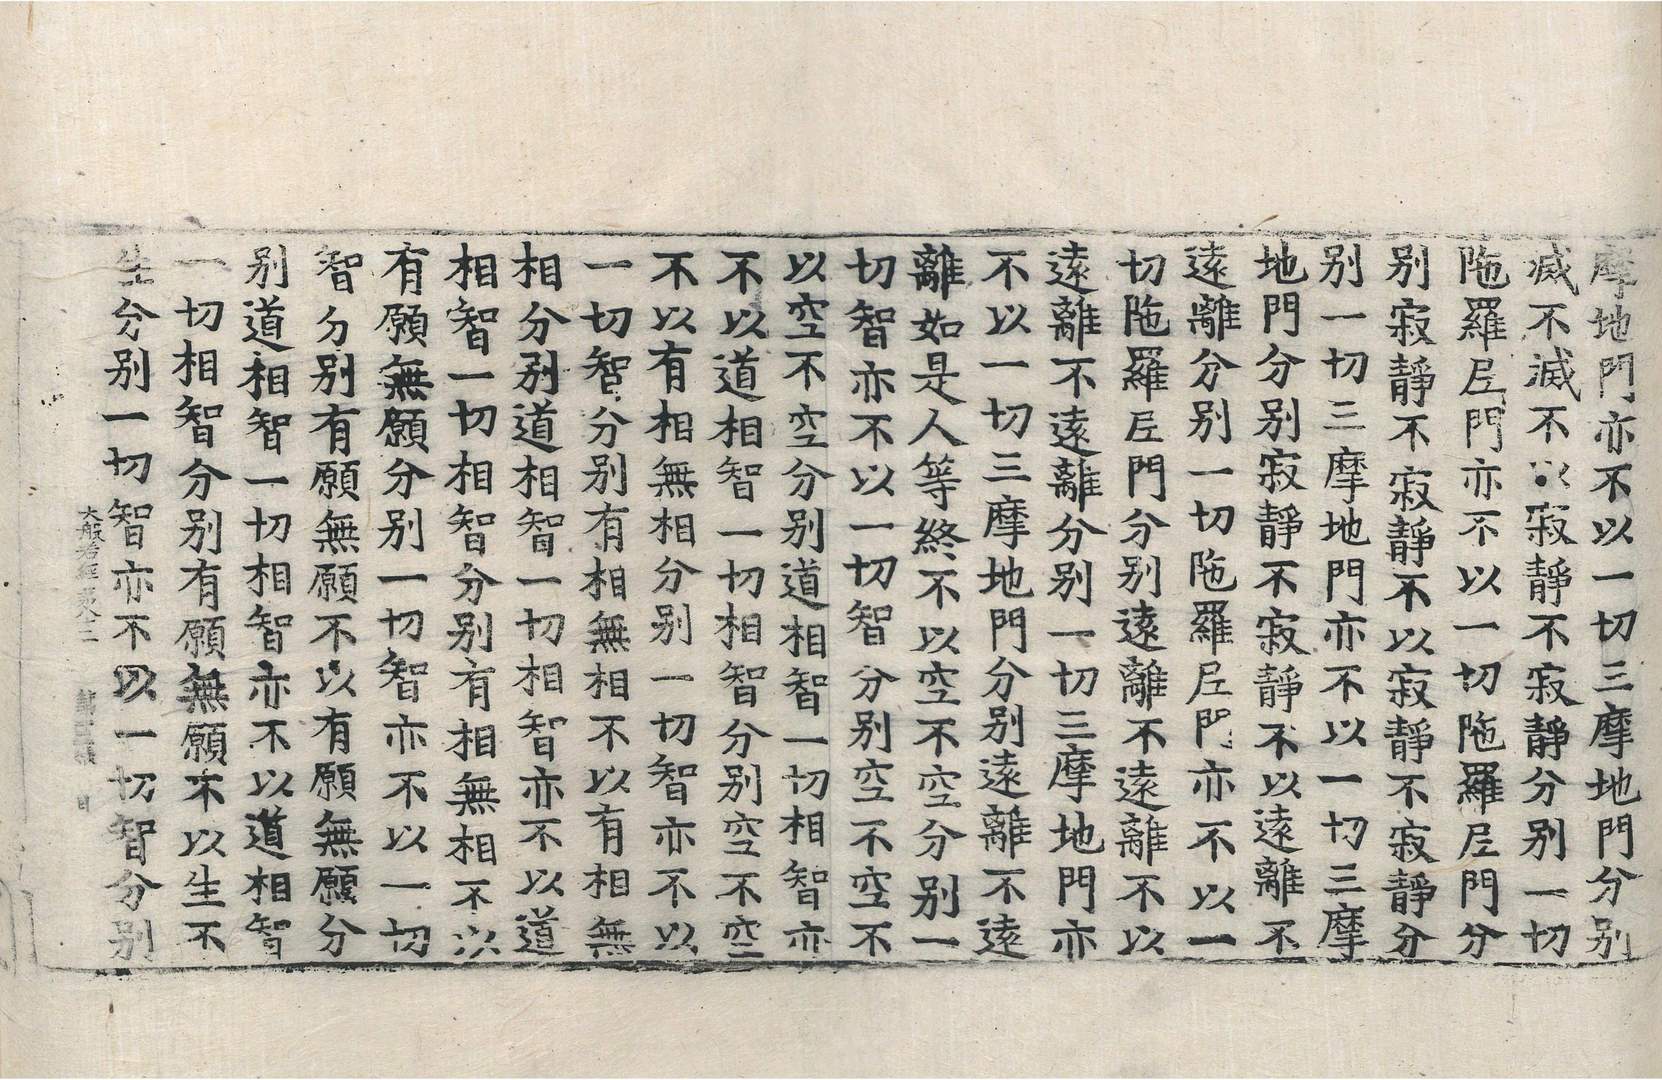 摩地門亦不以一切三摩地門分别
滅不滅不以寂靜不寂靜分别一切
陁羅尼門亦不以一切陁羅尼門分
别寂靜不寂靜不以寂靜不寂靜分
别一切三摩地門亦不以一切三摩
地門分别寂靜不寂靜不以遠離不
遠離分别一切陁羅尼門亦不以一
切陁羅尼門分别遠離不遠離不以
遠離不遠離分别一切三摩地門亦
不以一切三摩地門分别遠離不遠
離如是人等終不以空不空分别一
切智亦不以一切智分别空不空不
以空不空分别道相智一切相智亦
不以道相智一切相智分别空不空
不以有相無相分别一切智亦不以
一切智分别有相無相不以有相無
相分别道相智一切相智亦不以道
相智一切相智分别有相無相不以
有願無願分别一切智亦不以一切
智分别有願無願不以有願無願分
别道相智一切相智亦不以道相智
一切相智分别有願無願不以生不
生分别一切智亦不以一切智分别
大般若經